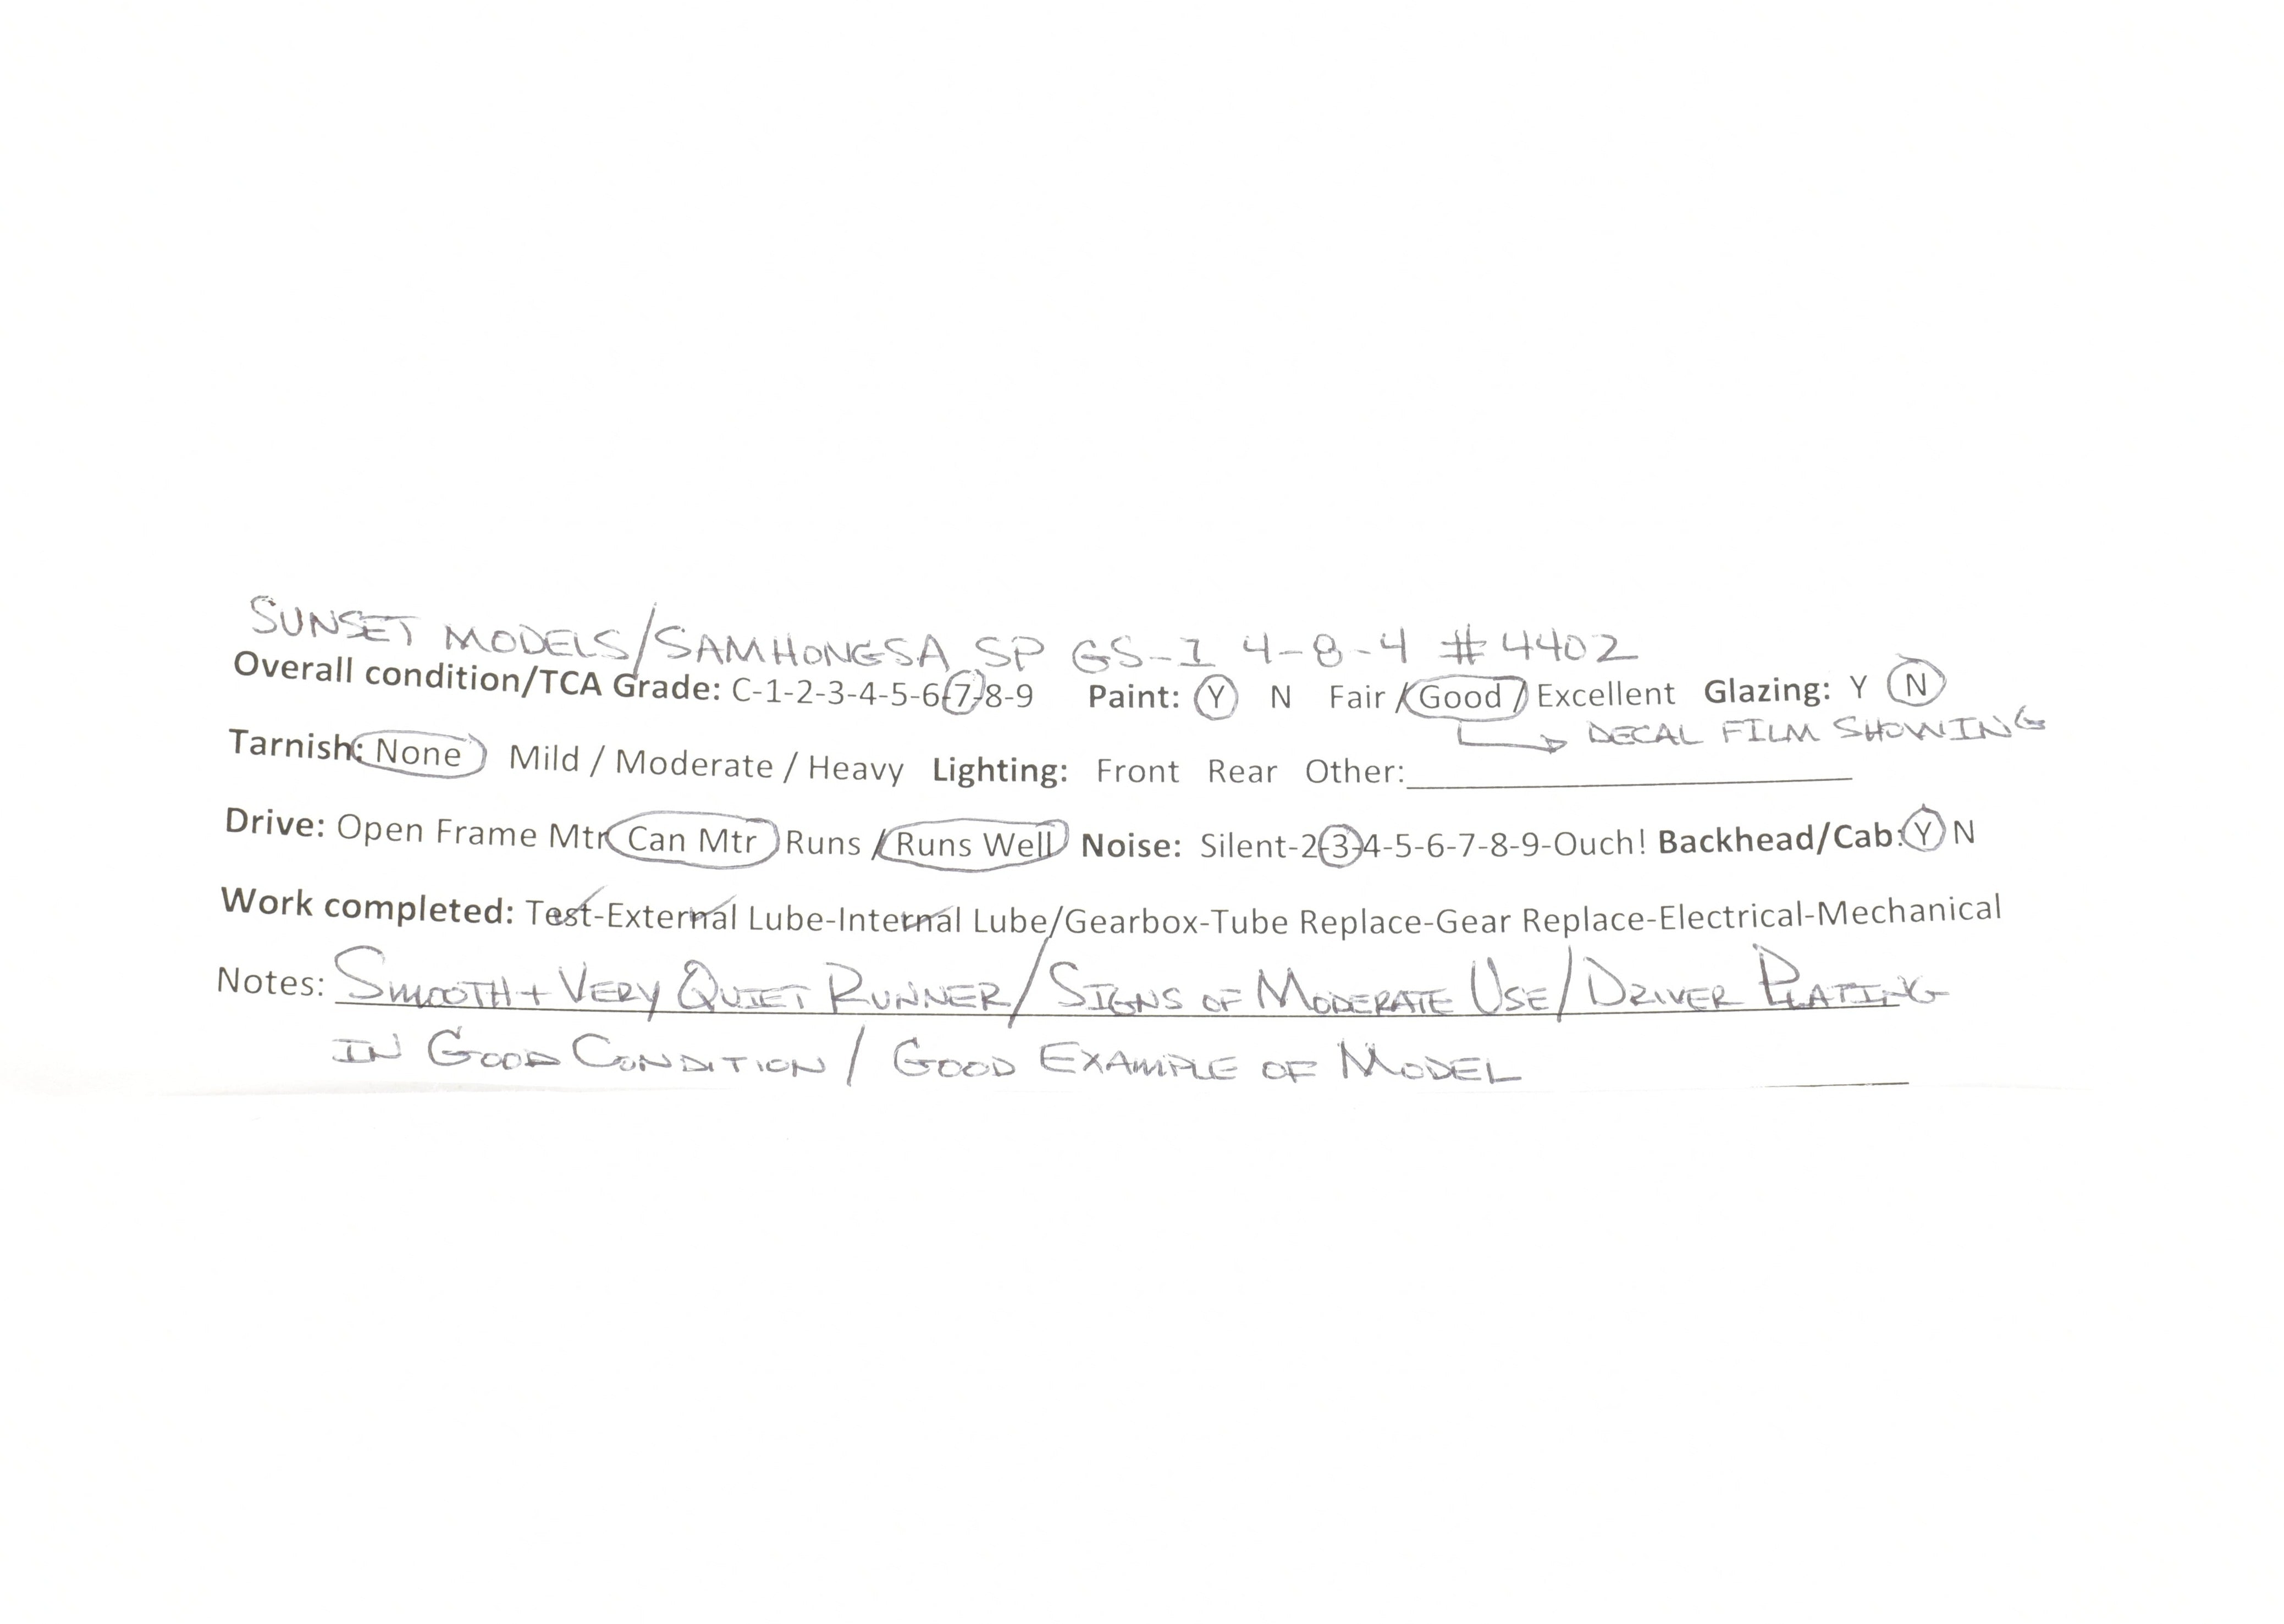 SUNSET MODELS/SAMHONGSA SP GS-1 4-8-4 #4402
Overall condition/TCA Grade: C-1-2-3-4-5-6-7-8-9 Paint: Y N Fair / Good / Excellent Glazing: Y N
DECAL FILM SHOWING
Tarnish: None Mild / Moderate / Heavy Lighting: Front Rear Other:
Drive: Open Frame Mtr Can Mtr Runs / Runs Well Noise: Silent-2-3-4-5-6-7-8-9-Ouch! Backhead/Cab: Y N
Work completed: Test-External Lube-Internal Lube/Gearbox-Tube Replace-Gear Replace-Electrical-Mechanical
Notes: SMOOTH + VERY QUIET RUNNER/SIGNS OF MODERATE USE/DRIVER PLATING
IN GOOD CONDITION/ GOOD EXAMPLE OF MODEL